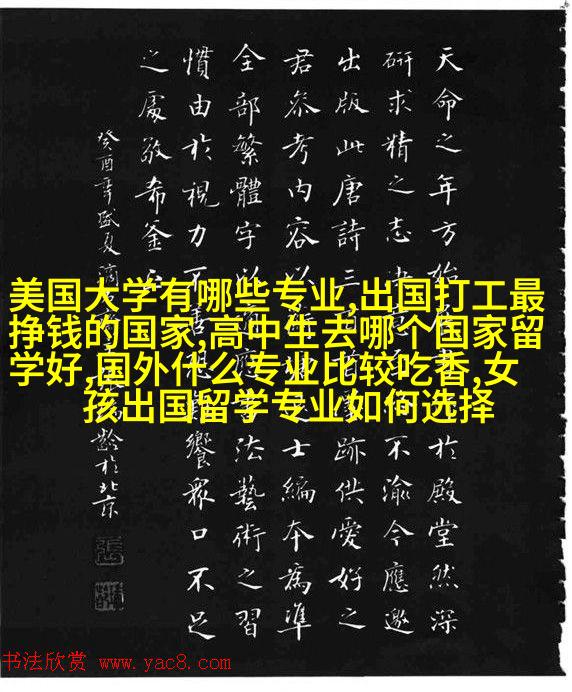 天命之年方於殿堂然深
研求精之志不渝今應邀
出版此唐詩三百跡供愛好之
君参考内容以士編本為準
全部繁體字以法藝術之習
慣由於視力不善饗眾口不足
之處敬希鉴
癸酉年盛夏齡於北京
美国大学有哪些专业,出国打工最
挣钱的国家,高中生去哪个国家留
学好,国外什么专业比较吃香,女
孩出国留学专业如何选择
书法欣赏 www.yac8.com